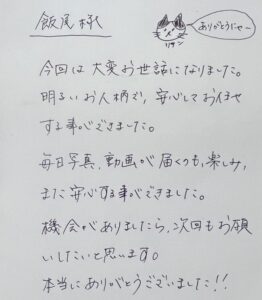 飯尾 様
ありがとうにゃー
リサン
今回は大変お世話になりました。
明るいお人柄で、安心してお任せ
する事ができました。
毎日写真、動画が届くのも、楽しみ、
また安心する事ができました。
機会がありましたら、次回もお願
いしたいと思います。
本当にありがとうございました!!